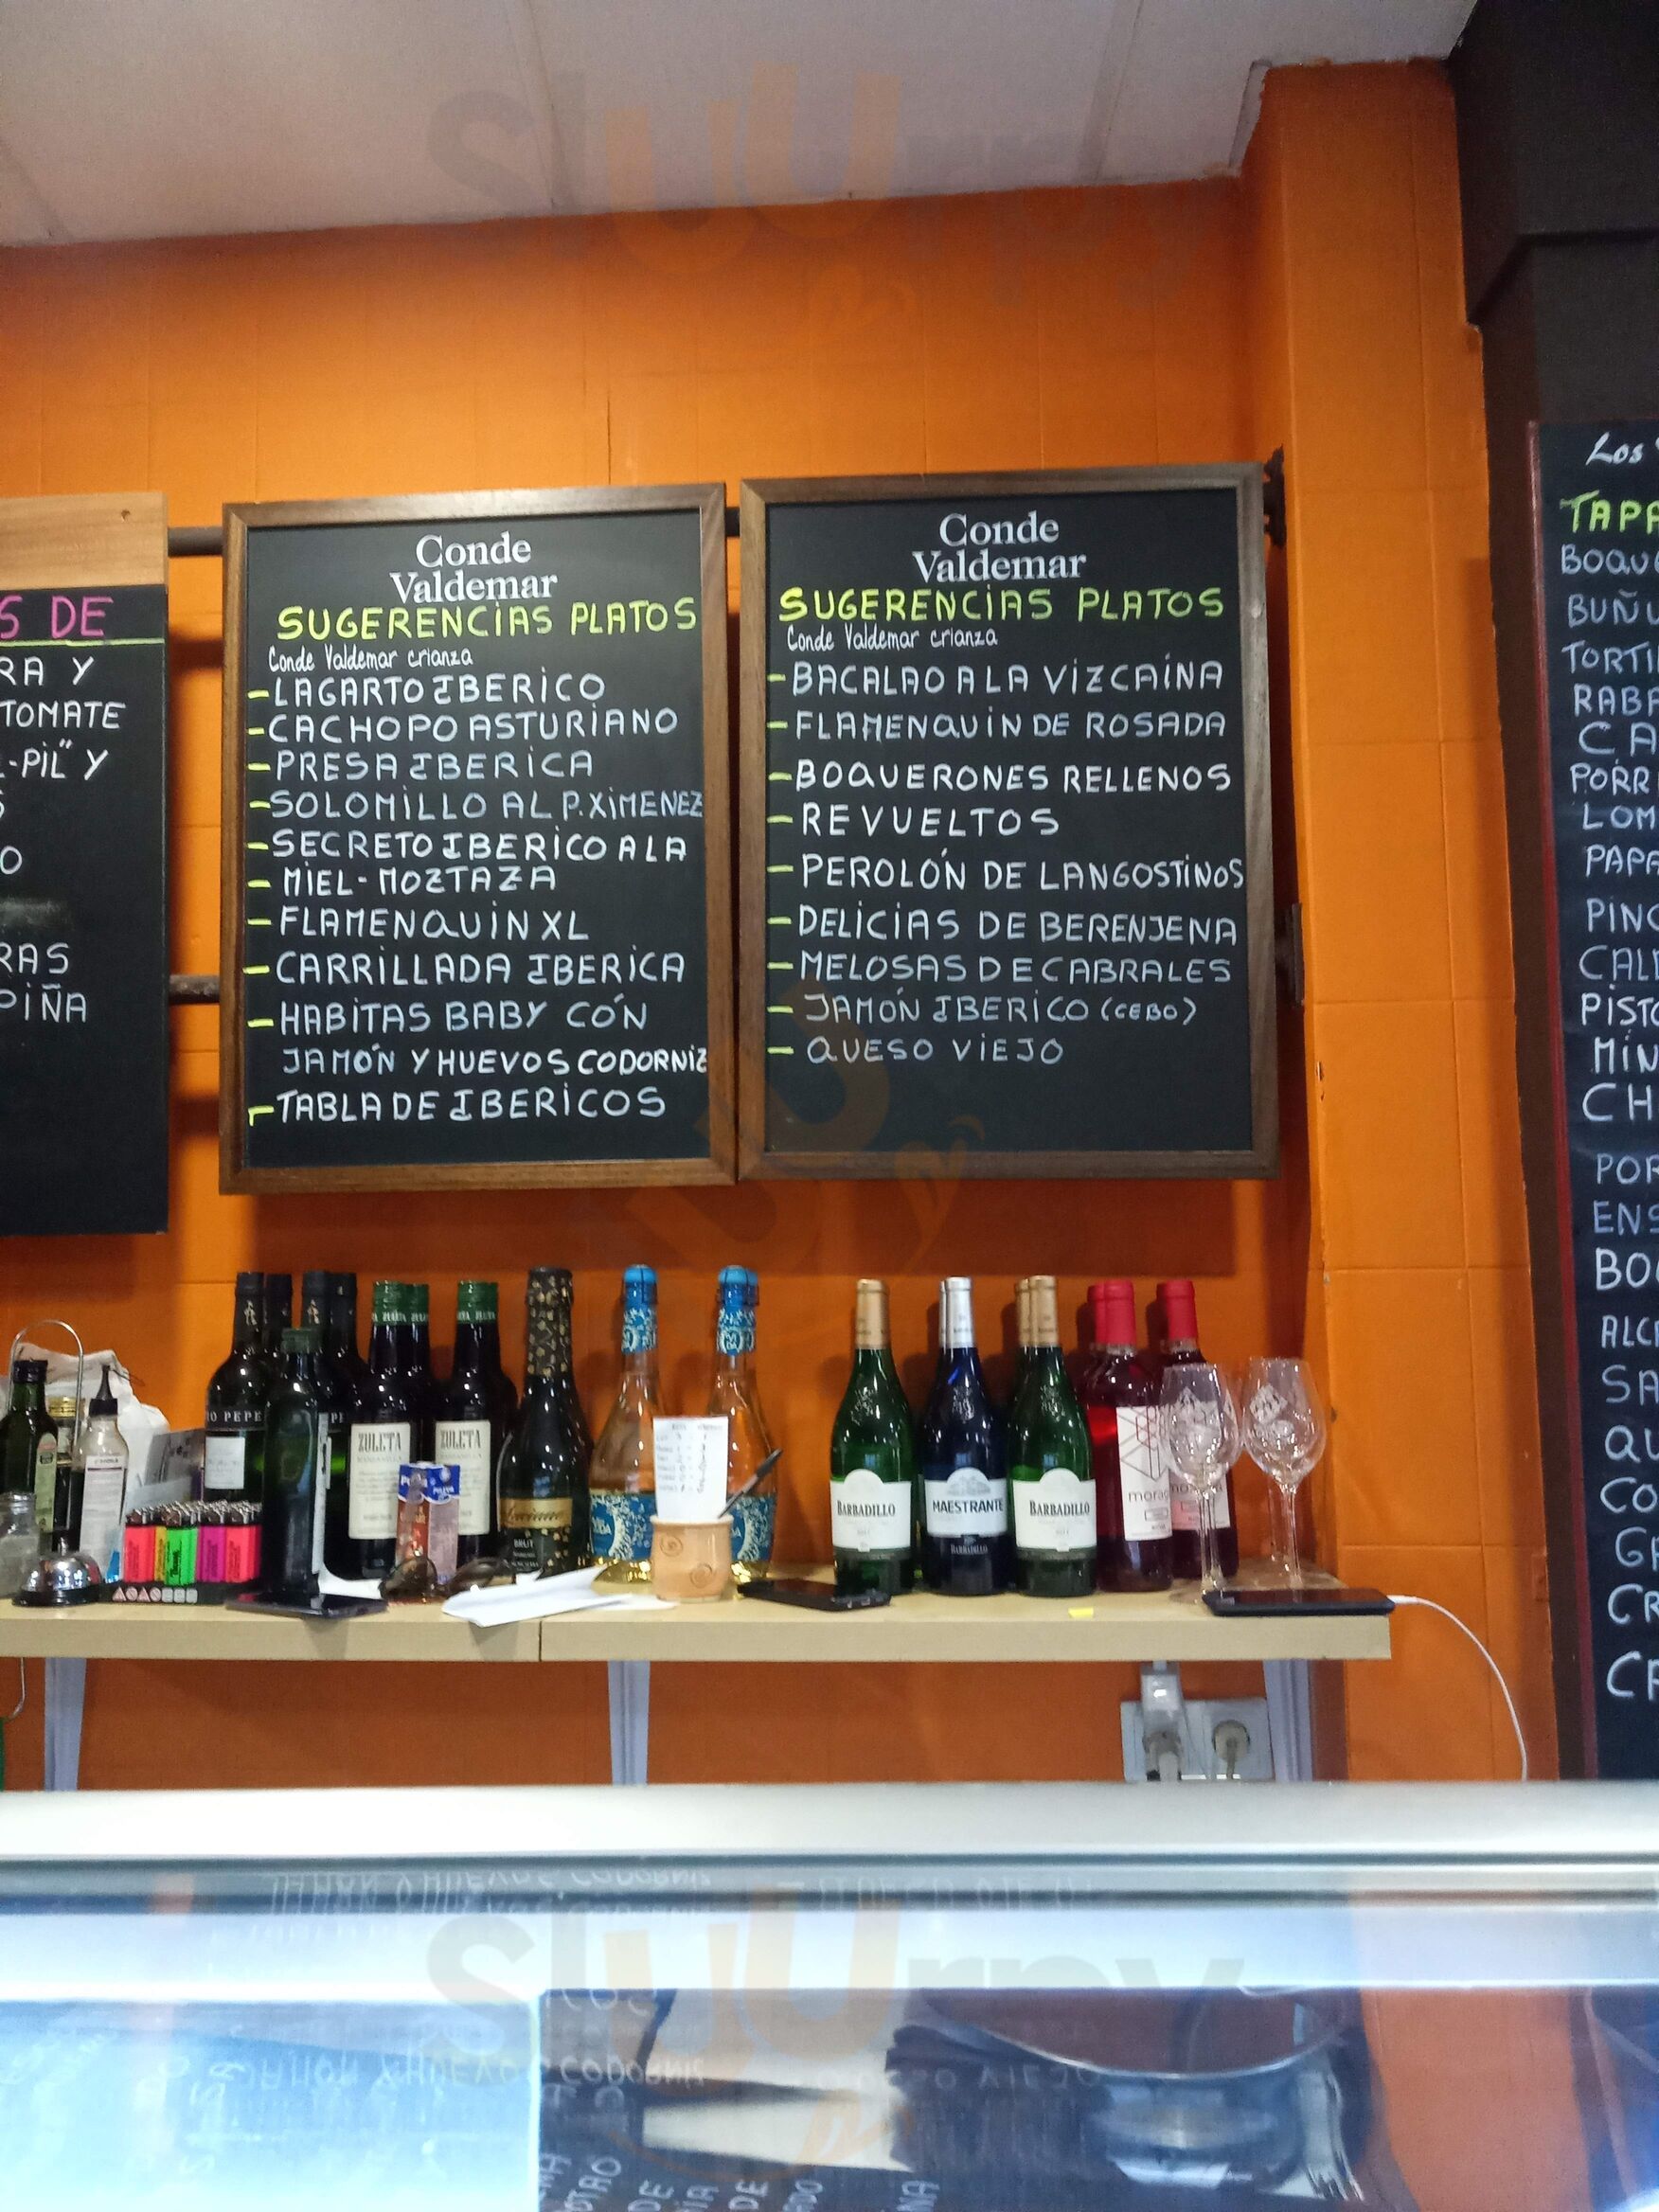 S DE
RA Y
TOMATE
-PiL" Y
O
RAS
PiÑA
Conde
Valdemar
SUGERENCiAS PLATOS
Conde Valdemar crianza
-LAGARTO IBERiCO
-CACHOPO ASTURiANO
-PRESA IBERiCA
-SOLOMiLLO AL P. XiMENEZ
-SECRETO IBERiCO A LA
- MiEL-MOZTAZA
- FLAMENQUiN XL
- CARRiLLADA IBERiCA
-HABiTAS BABY CÓN
JAMÓN Y HUEVOS CODORNiZ
-TABLA DE IBERiCOS
Conde
Valdemar
SUGERENCiAS PLATOS
Conde Valdemar crianza
-BACALAO A LA ViZCAíNA
-FLAMENQUiN DE ROSADA
-BOQUERONES RELLENOS
-REVUELTOS
-PEROLÓN DE LANGOSTiNOS
-DELiCiAS DE BERENJENA
-MELOSAS DE CABRALES
- JAMÓN IBERiCO (CEBO)
- QUESO ViEJO
Los
TAPA
BOQUE
BUÑU
TORTi
RABA
CA
PORR
LOM
PAPA
PiNC
CAL
PiSTO
MiN
CH
POR
ENS
BOQ
ALC
SA
QU
CO
GA
CR
CR
iO PEPE
ZULETA
ZULETA
BRUT
BARBADILLO
MAESTRANTE
BARBADILLO
BARBADILLO
mora
Sluurpy
Sluurpy